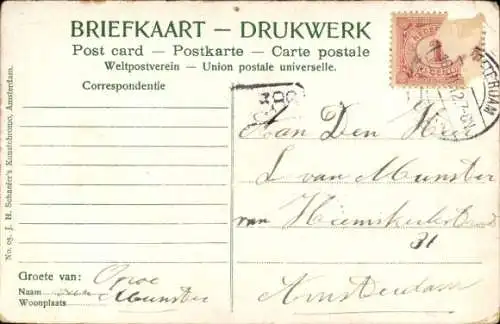 BRIEFKAART — DRUKWERK
Post card — Postkarte — Carte postale
Weltpostverein — Union postale universelle.
Correspondentie
No. 03. J. H. Schaefer's Kunstchromo, Amsterdam.
Aan Den Heer
L van Munster
van Heemskerkstraat
31
Amsterdam
Groete van:
Naam van Munster
Woonplaats